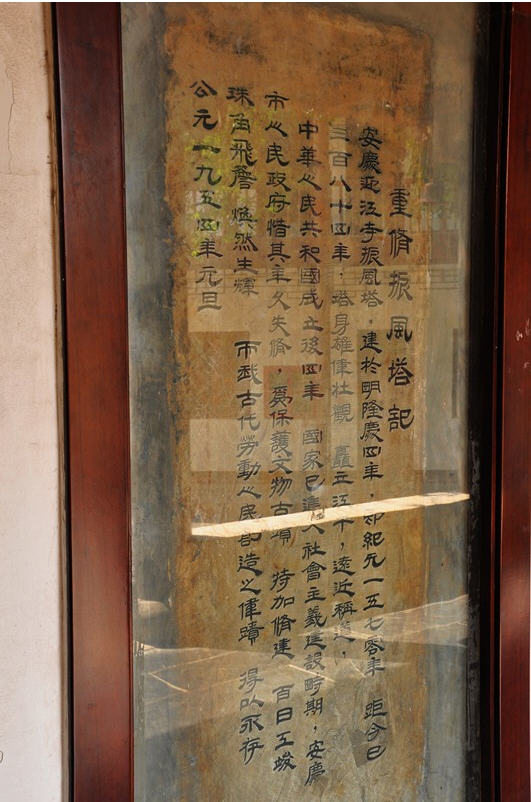 重脩振風塔記
安慶迎江寺振風塔，建於明隆慶四年，即紀元一五七零年 距今已
三百八十四年，塔身雄偉壯觀 矗立江干，遠近稱道，
中華人民共和國成立後四年 國家已進入社會主義建設時期，安慶
市人民政府惜其年久失脩，爲保護文物古蹟 特加脩建 百日工竣
珠角飛簷 煥然生輝 而我古代勞動人民創造之偉蹟 得以永存
公元一九五四年元旦